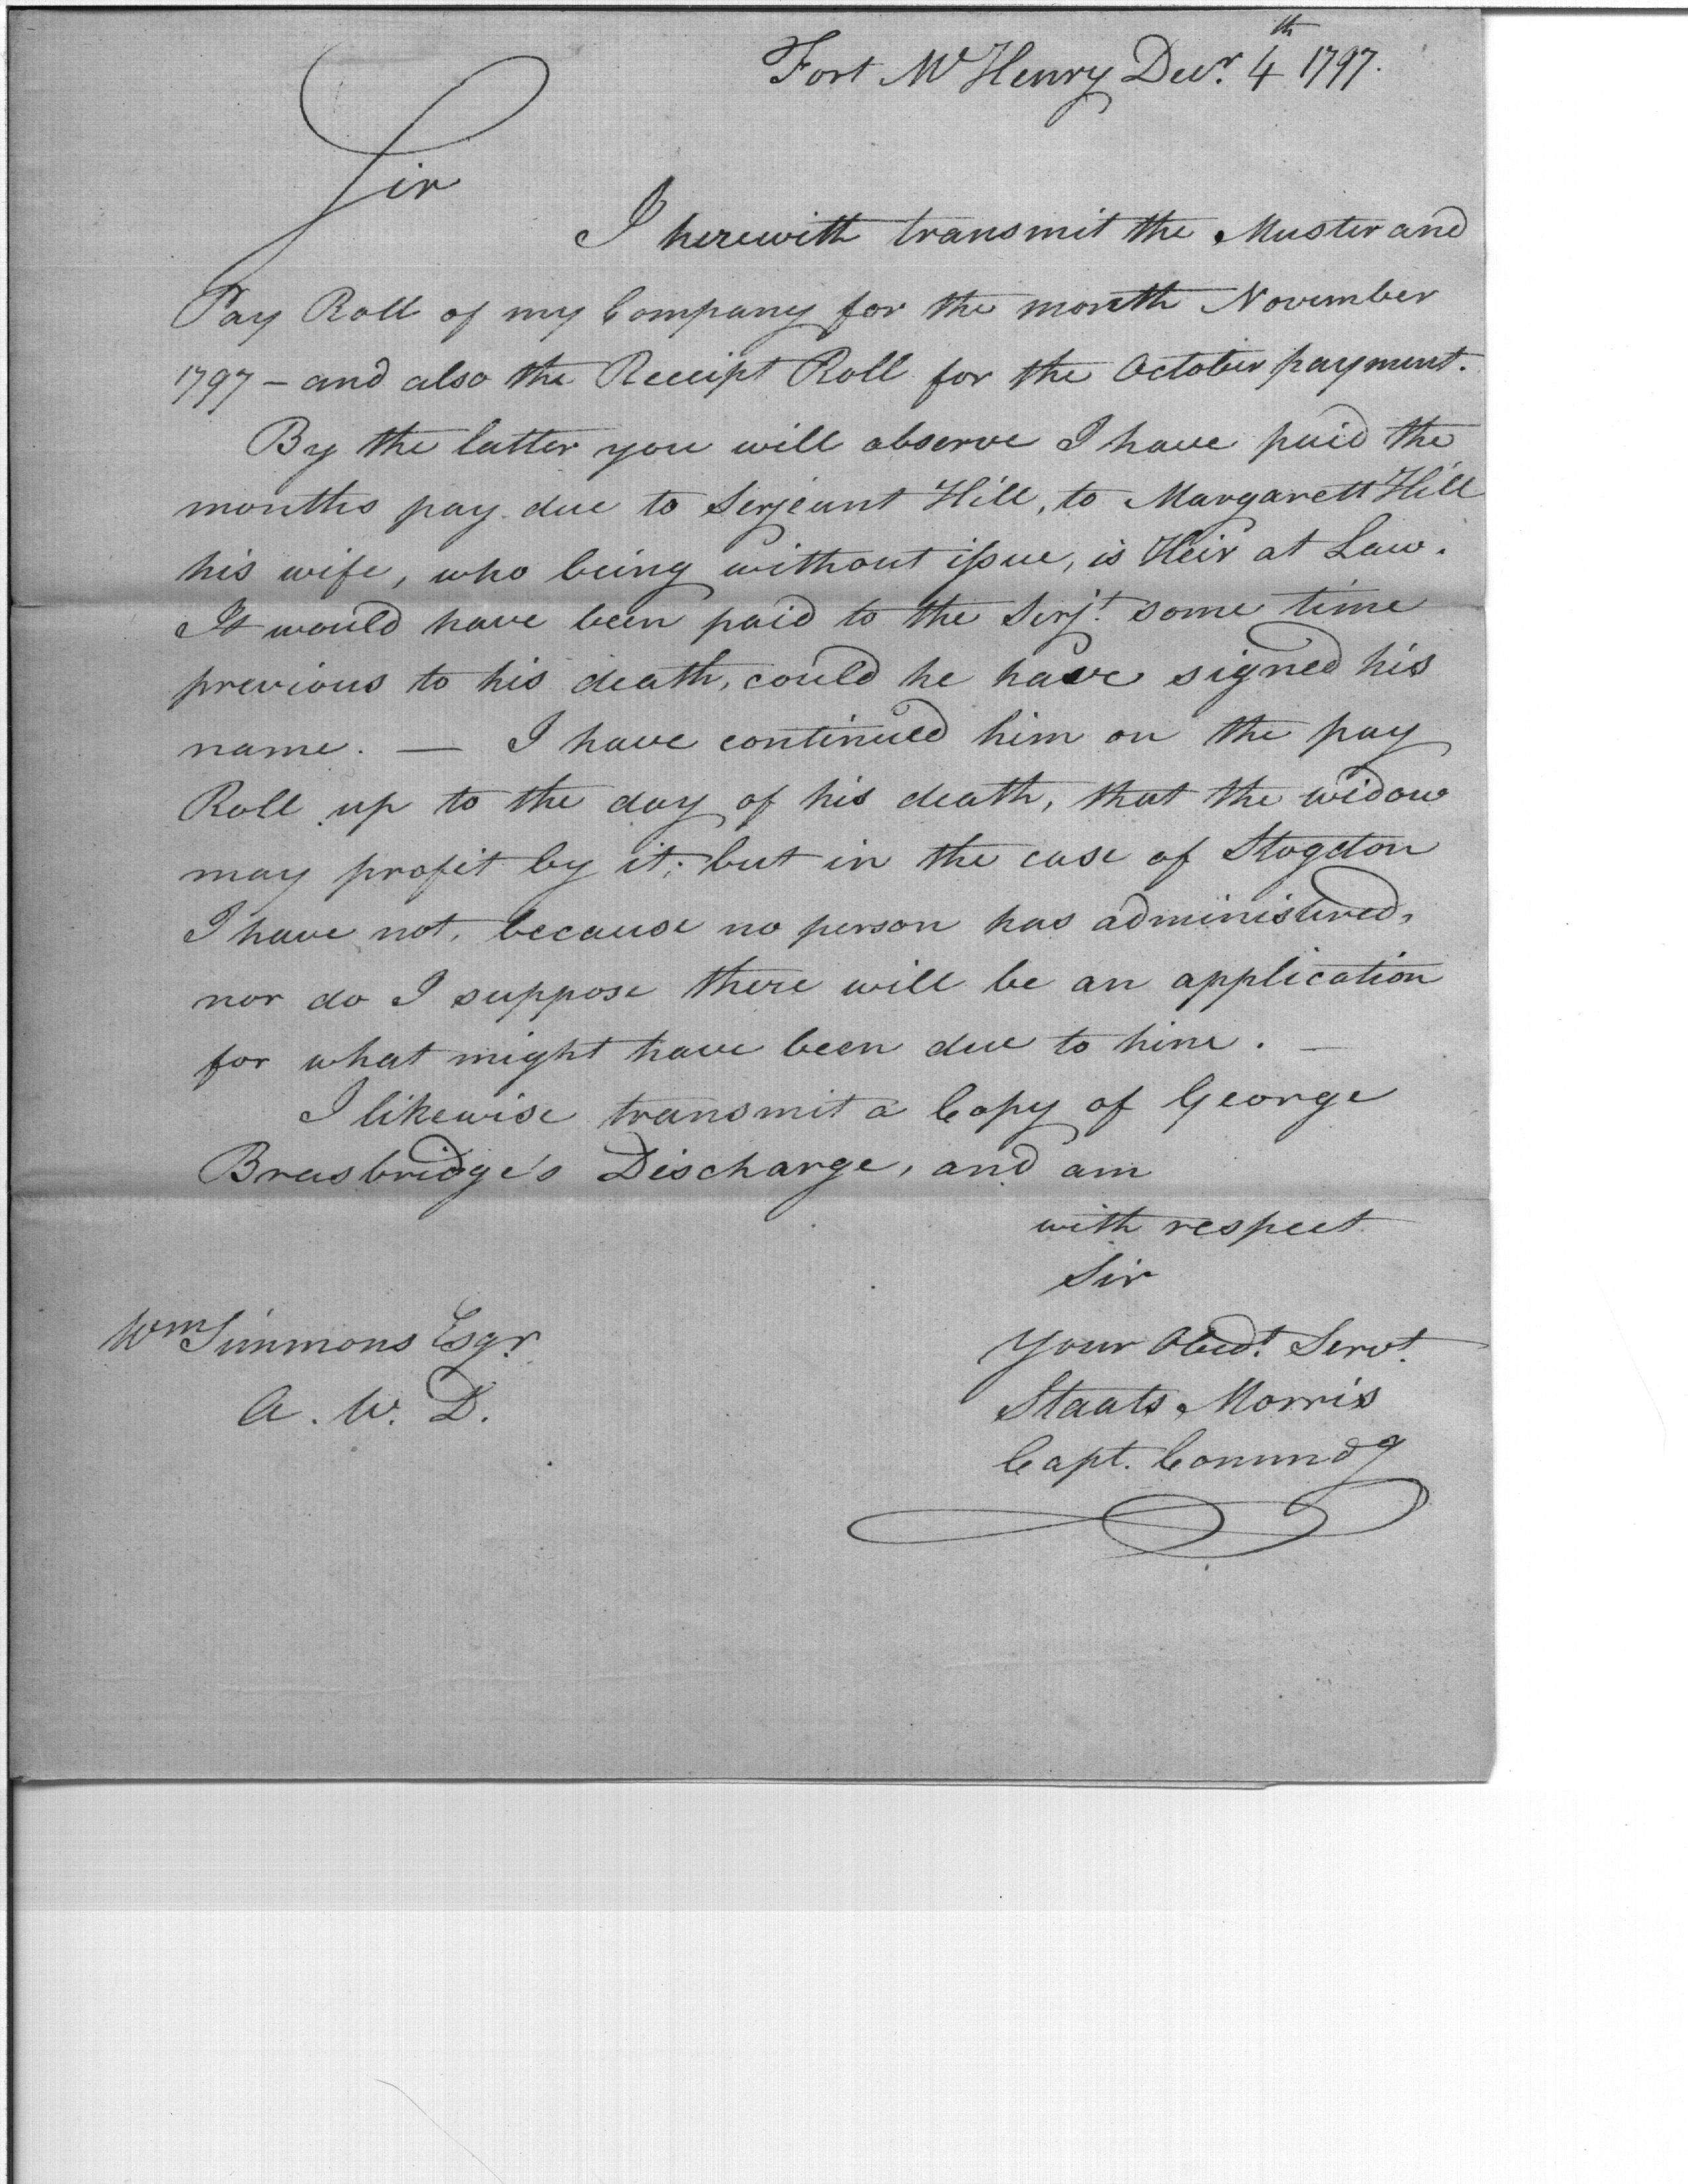 Fort McHenry Decr. 4th 1797.
Sir
I herewith transmit the Muster and
Pay Roll of my Company for the month November
1797 – and also the Receipt Roll for the October payment.
By the latter you will observe I have paid the
months pay due to Serjeant Hill, to Margarett Hill
his wife, who being without issue, is Heir at Law.
It would have been paid to the Serjt. some time
previous to his death, could he have signed his
name. — I have continued him on the pay
Roll up to the day of his death, that the widow
may profit by it; but in the case of Stogdon
I have not, because no person has administered,
nor do I suppose there will be an application
for what might have been due to him. —
I likewise transmit a Copy of George
Brasbridge's Discharge, and am
with respect
Sir
Your Obedt. Servt.
Staats Morris
Capt. Commdg
Wm Simmons Esqr.
A. W. D.